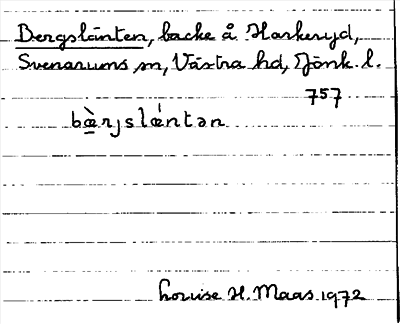 Bergslänten, backe å Harkeryd,
Svenarums sn, Västra hd, Jönk. l.
757
bæ̀rjslǽntən
Louise H. Maas 1972